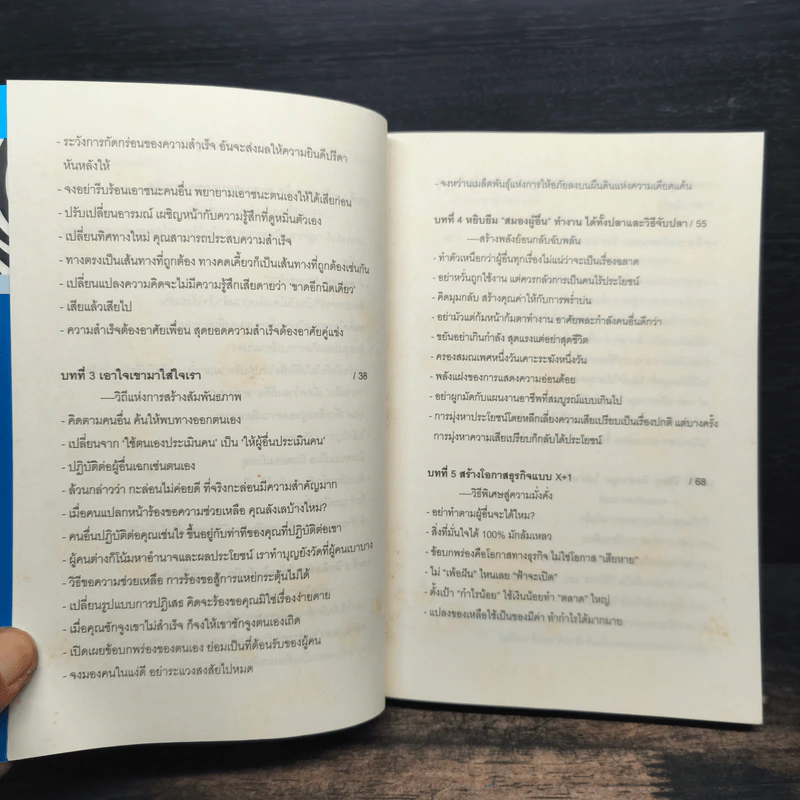 - ระวังการกัดกร่อนของความสำเร็จ อันจะส่งผลให้ความยินดีปรีดา
หันหลังให้
- จงอย่ารีบร้อนเอาชนะคนอื่น พยายามเอาชนะตนเองให้ได้เสียก่อน
- ปรับเปลี่ยนอารมณ์ เผชิญหน้ากับความรู้สึกที่ดูหมิ่นตัวเอง
- เปลี่ยนทิศทางใหม่ คุณสามารถประสบความสำเร็จ
- ทางตรงเป็นเส้นทางที่ถูกต้อง ทางคดเคี้ยวก็เป็นเส้นทางที่ถูกต้องเช่นกัน
- เปลี่ยนแปลงความคิดจะไม่มีความรู้สึกเสียดายว่า 'ขาดอีกนิดเดียว'
- เสียแล้วเสียไป
- ความสำเร็จต้องอาศัยเพื่อน สุดยอดความสำเร็จต้องอาศัยคู่แข่ง
บทที่ 3 เอาใจเขามาใส่ใจเรา / 38
----วิถีแห่งการสร้างสัมพันธภาพ
- คิดตามคนอื่น ค้นให้พบทางออกตนเอง
- เปลี่ยนจาก 'ใช้ตนเองประเมินคน' เป็น 'ให้ผู้อื่นประเมินคน'
- ปฏิบัติต่อผู้อื่นเฉกเช่นตนเอง
- ล้วนกล่าวว่า กะล่อนไม่ค่อยดี ที่จริงกะล่อนมีความสำคัญมาก
- เมื่อคนแปลกหน้าร้องขอความช่วยเหลือ คุณลังเลบ้างไหม?
- คนอื่นปฏิบัติต่อคุณเช่นไร ขึ้นอยู่กับท่าทีของคุณที่ปฏิบัติต่อเขา
- ผู้คนต่างก็โน้มหาอำนาจและผลประโยชน์ เราทำบุญยังวัดที่ผู้คนเบาบาง
- วิธีขอความช่วยเหลือ การร้องขอสู้การแหย่กระตุ้นไม่ได้
- เปลี่ยนรูปแบบการปฏิเสธ คิดจะร้องขอคุณมิใช่เรื่องง่ายดาย
- เมื่อคุณชักจูงเขาไม่สำเร็จ ก็จงให้เขาชักจูงตนเองเถิด
- เปิดเผยข้อบกพร่องของตนเอง ย่อมเป็นที่ต้อนรับของผู้คน
- จงมองคนในแง่ดี อย่าระแวงสงสัยไปหมด
- จงหว่านเมล็ดพันธุ์แห่งการให้อภัยลงบนผืนดินแห่งความเคียดแค้น
บทที่ 4 หยิบยืม "สมองผู้อื่น" ทำงาน ได้ทั้งปลาและวิธีจับปลา / 55
----สร้างพลังย้อนกลับฉับพลัน
- ทำตัวเหนือกว่าผู้อื่นทุกเรื่องไม่แน่ว่าจะเป็นเรื่องฉลาด
- อย่าหวั่นถูกใช้งาน แต่ควรกลัวการเป็นคนไร้ประโยชน์
- คิดมุมกลับ สร้างคุณค่าให้กับการพร่ำบ่น
- อย่ามัวแต่ก้มหน้าก้มตาทำงาน อาศัยพละกำลังคนอื่นดีกว่า
- ขยันอย่าเกินกำลัง สุดแรงแต่อย่าสุดชีวิต
- ครองสมณเพศหนึ่งวันเคาะระฆังหนึ่งวัน
- พลังแฝงของการแสดงความอ่อนด้อย
- อย่าผูกมัดกับแผนงานอาชีพที่สมบูรณ์แบบเกินไป
- การมุ่งหาประโยชน์โดยหลีกเลี่ยงความเสียเปรียบเป็นเรื่องปกติ แต่บางครั้ง
การมุ่งหาความเสียเปรียบก็กลับได้ประโยชน์
บทที่ 5 สร้างโอกาสธุรกิจแบบ X+1 / 68
----วิธีพิเศษสู่ความมั่งคั่ง
- อย่าทำตามผู้อื่นจะได้ไหม?
- สิ่งที่มั่นใจได้ 100% มักล้มเหลว
- ข้อบกพร่องคือโอกาสทางธุรกิจ ไม่ใช่โอกาส "เสียหาย"
- ไม่ "เพ้อฝัน" ไหนเลย "ฟ้าจะเปิด"
- ตั้งเป้า "กำไรน้อย" ใช้เงินน้อยทำ "ตลาด" ใหญ่
- แปลงของเหลือใช้เป็นของมีค่า ทำกำไรได้มากมาย